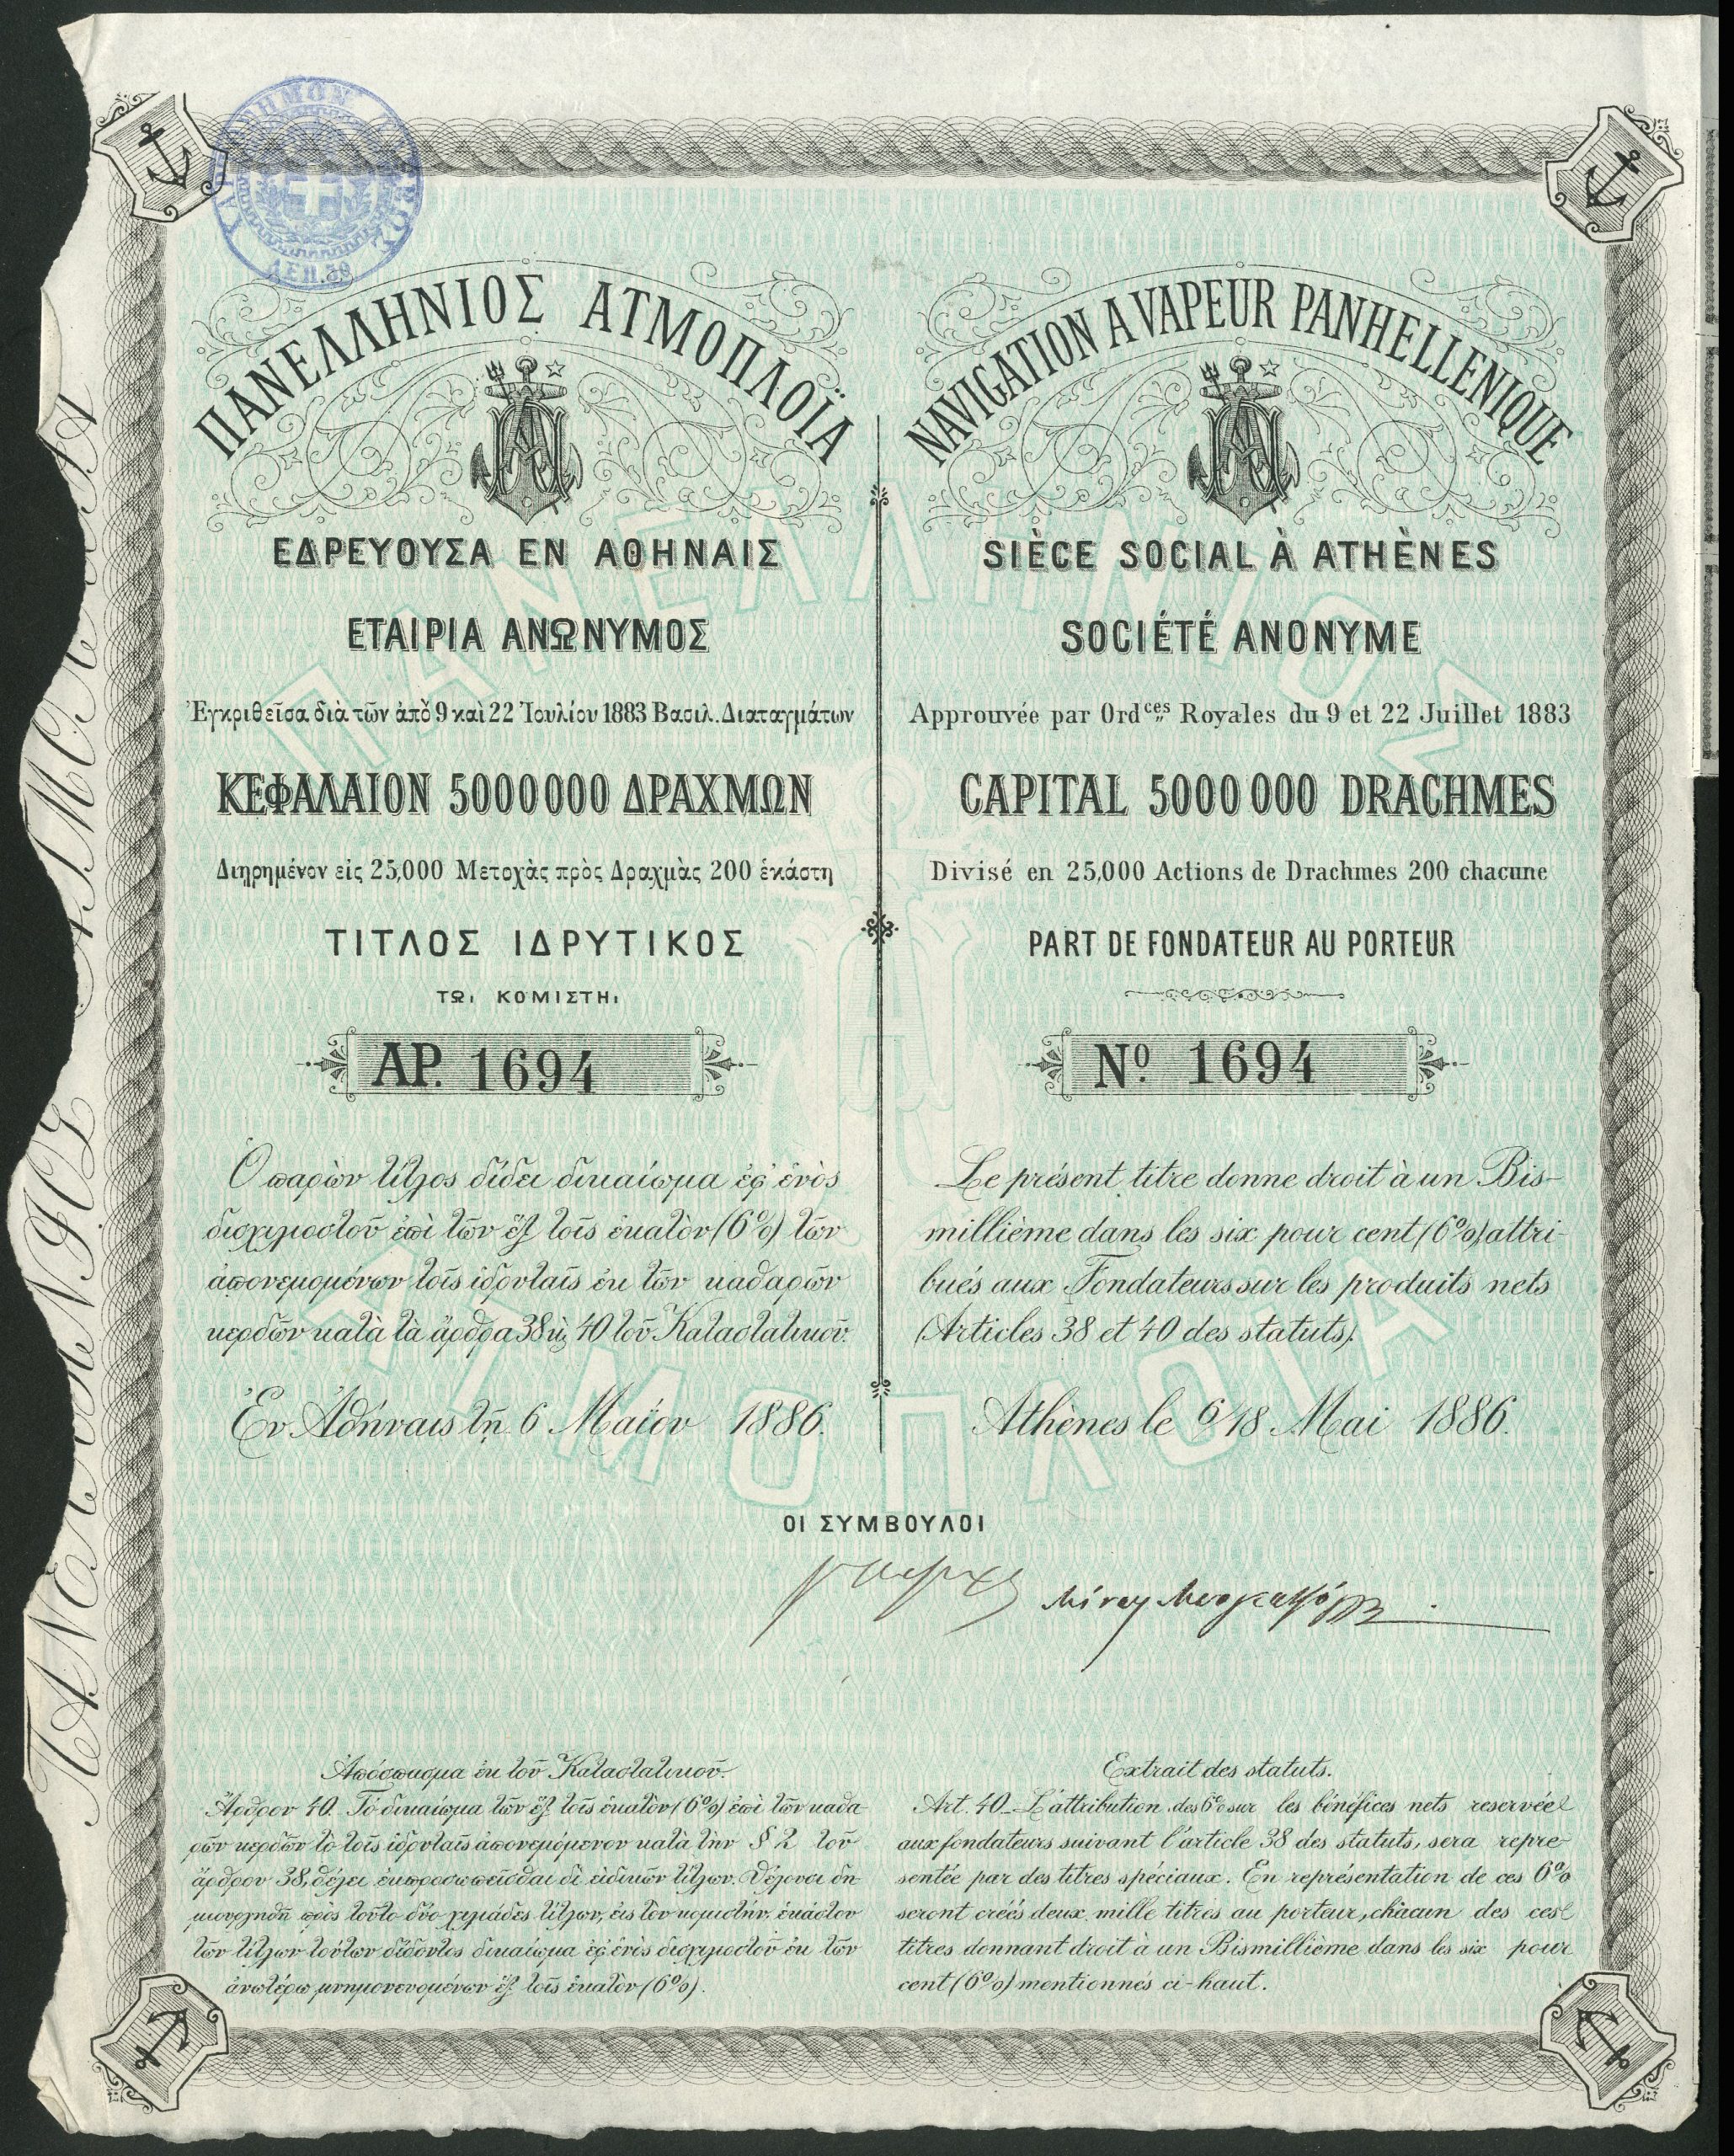 ΠΑΝΕΛΛΗΝΙΟΣ ΑΤΜΟΠΛΟΪΑ
ΕΔΡΕΥΟΥΣΑ ΕΝ ΑΘΗΝΑΙΣ
ΕΤΑΙΡΙΑ ΑΝΩΝΥΜΟΣ
Ἐγκριθεῖσα διὰ τῶν ἀπὸ 9 καὶ 22 Ἰουλίου 1883 Βασιλ. Διαταγμάτων
ΚΕΦΑΛΑΙΟΝ 5000000 ΔΡΑΧΜΩΝ
Διῃρημένον εἰς 25,000 Μετοχὰς πρὸς Δραχμὰς 200 ἑκάστη
ΤΙΤΛΟΣ ΙΔΡΥΤΙΚΟΣ
ΤΩι ΚΟΜΙΣΤΗι
ΑΡ. 1694
Ὁ παρὼν τίτλος δίδει δικαίωμα ἐφ' ἑνὸς
δισχιλιοστοῦ ἐπὶ τῶν ἓξ τοῖς ἑκατὸν (6%) τῶν
ἀπονεμομένων τοῖς ἱδρυταῖς ἐκ τῶν καθαρῶν
κερδῶν κατὰ τὰ ἄρθρα 38 κ̀ 40 τοῦ Καταστατικοῦ.
Ἐν Ἀθήναις τῇ 6 Μαΐου 1886.
NAVIGATION A VAPEUR PANHELLENIQUE
SIÈCE SOCIAL À ATHÈNES
SOCIÉTÉ ANONYME
Approuvée par Ordces Royales du 9 et 22 Juillet 1883
CAPITAL 5000 000 DRACHMES
Divisé en 25,000 Actions de Drachmes 200 chacune
PART DE FONDATEUR AU PORTEUR
No. 1694
Le présent titre donne droit à un Bis-
millième dans les six pour cent (6%) attri-
bués aux Fondateurs sur les produits nets
(Articles 38 et 40 des statuts).
Athènes le 6/18 Mai 1886.
ΟΙ ΣΥΜΒΟΥΛΟΙ
Ἀπόσπασμα ἐκ τοῦ Καταστατικοῦ.
Ἄρθρον 40. Τὸ δικαίωμα τῶν ἓξ τοῖς ἑκατὸν (6%) ἐπὶ τῶν καθα-
ρῶν κερδῶν τὸ τοῖς ἱδρυταῖς ἀπονεμόμενον κατὰ τὴν § 2 τοῦ
ἄρθρου 38, θέλει ἐκπροσωπεῖσθαι δι' εἰδικῶν τίτλων. Θέλουσι δη-
μιουργηθῆ πρὸς τοῦτο δύο χιλιάδες τίτλων, εἰς τὸν κομιστήν, ἑκάστου
τῶν τίτλων τούτων διδόντος δικαίωμα ἐφ' ἑνὸς δισχιλιοστοῦ ἐκ τῶν
ἀνωτέρω μνημονευομένων ἓξ τοῖς ἑκατὸν (6%).
Extrait des statuts.
Art. 40_ L'attribution des 6% sur les bénéfices nets reservée
aux fondateurs suivant l'article 38 des statuts, sera repre-
sentée par des titres spéciaux. En représentation de ces 6%
seront créés deux mille titres au porteur, chacun des ces
titres donnant droit à un Bismillième dans les six pour
cent (6%) mentionnés ci-haut.
ΠΑΝΕΛΛΗΝΙΟΣ
ΑΤΜΟΠΛΟΙΑ